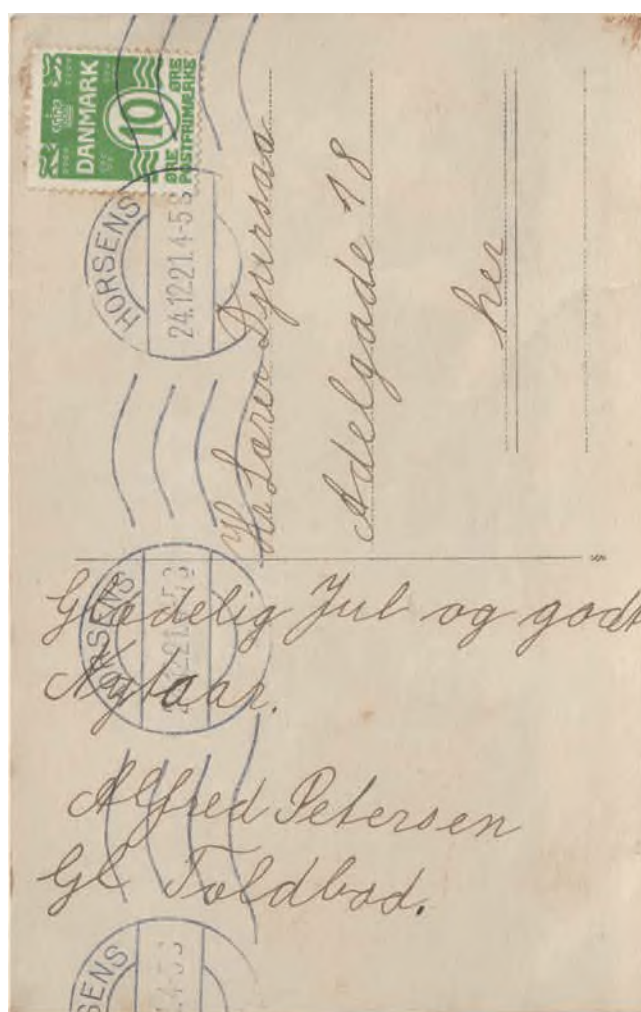 DANMARK
10
ØRE
ØRE
POSTFRIMÆRKE
HORSENS
24.12.21.4-5 S
Hr Lærer Djursaa
Adelgade 18
her
HORSENS
Glædelig Jul og godt
Nytaar.
Alfred Petersen
Gl Toldbod.
SENS